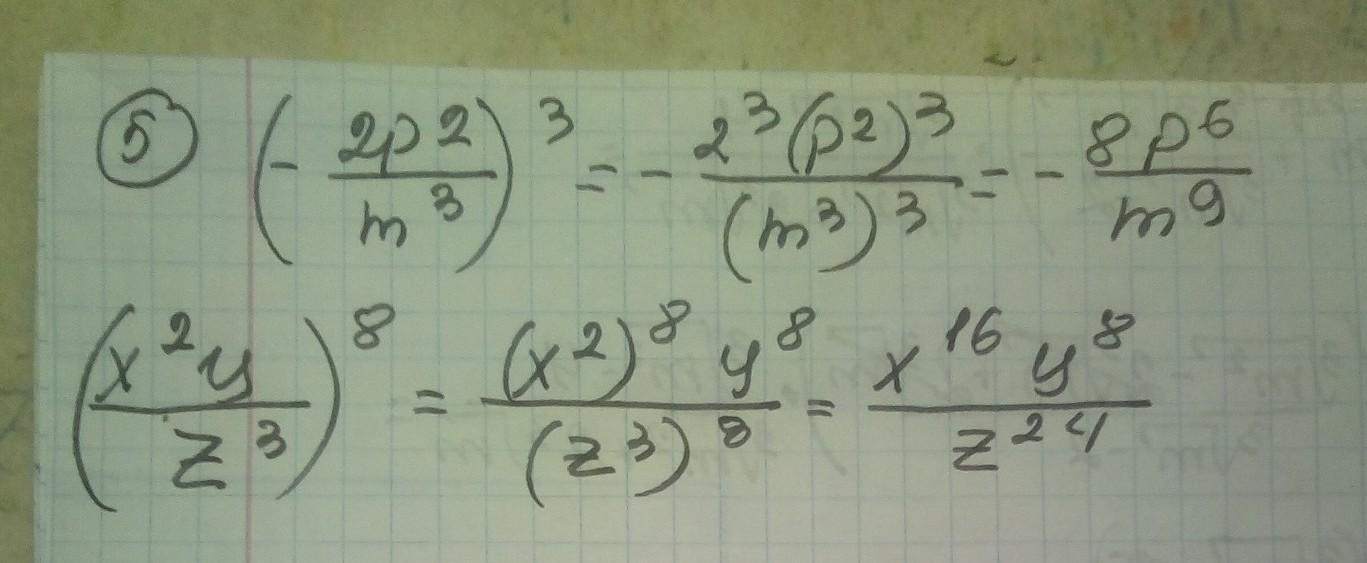 ⑤ (- 2p²/m³)³ = - 2³(p²)³/(m³)³ = - 8p⁶/m⁹
(x²y/z³)⁸ = (x²)⁸y⁸/(z³)⁸ = x¹⁶y⁸/z²⁴